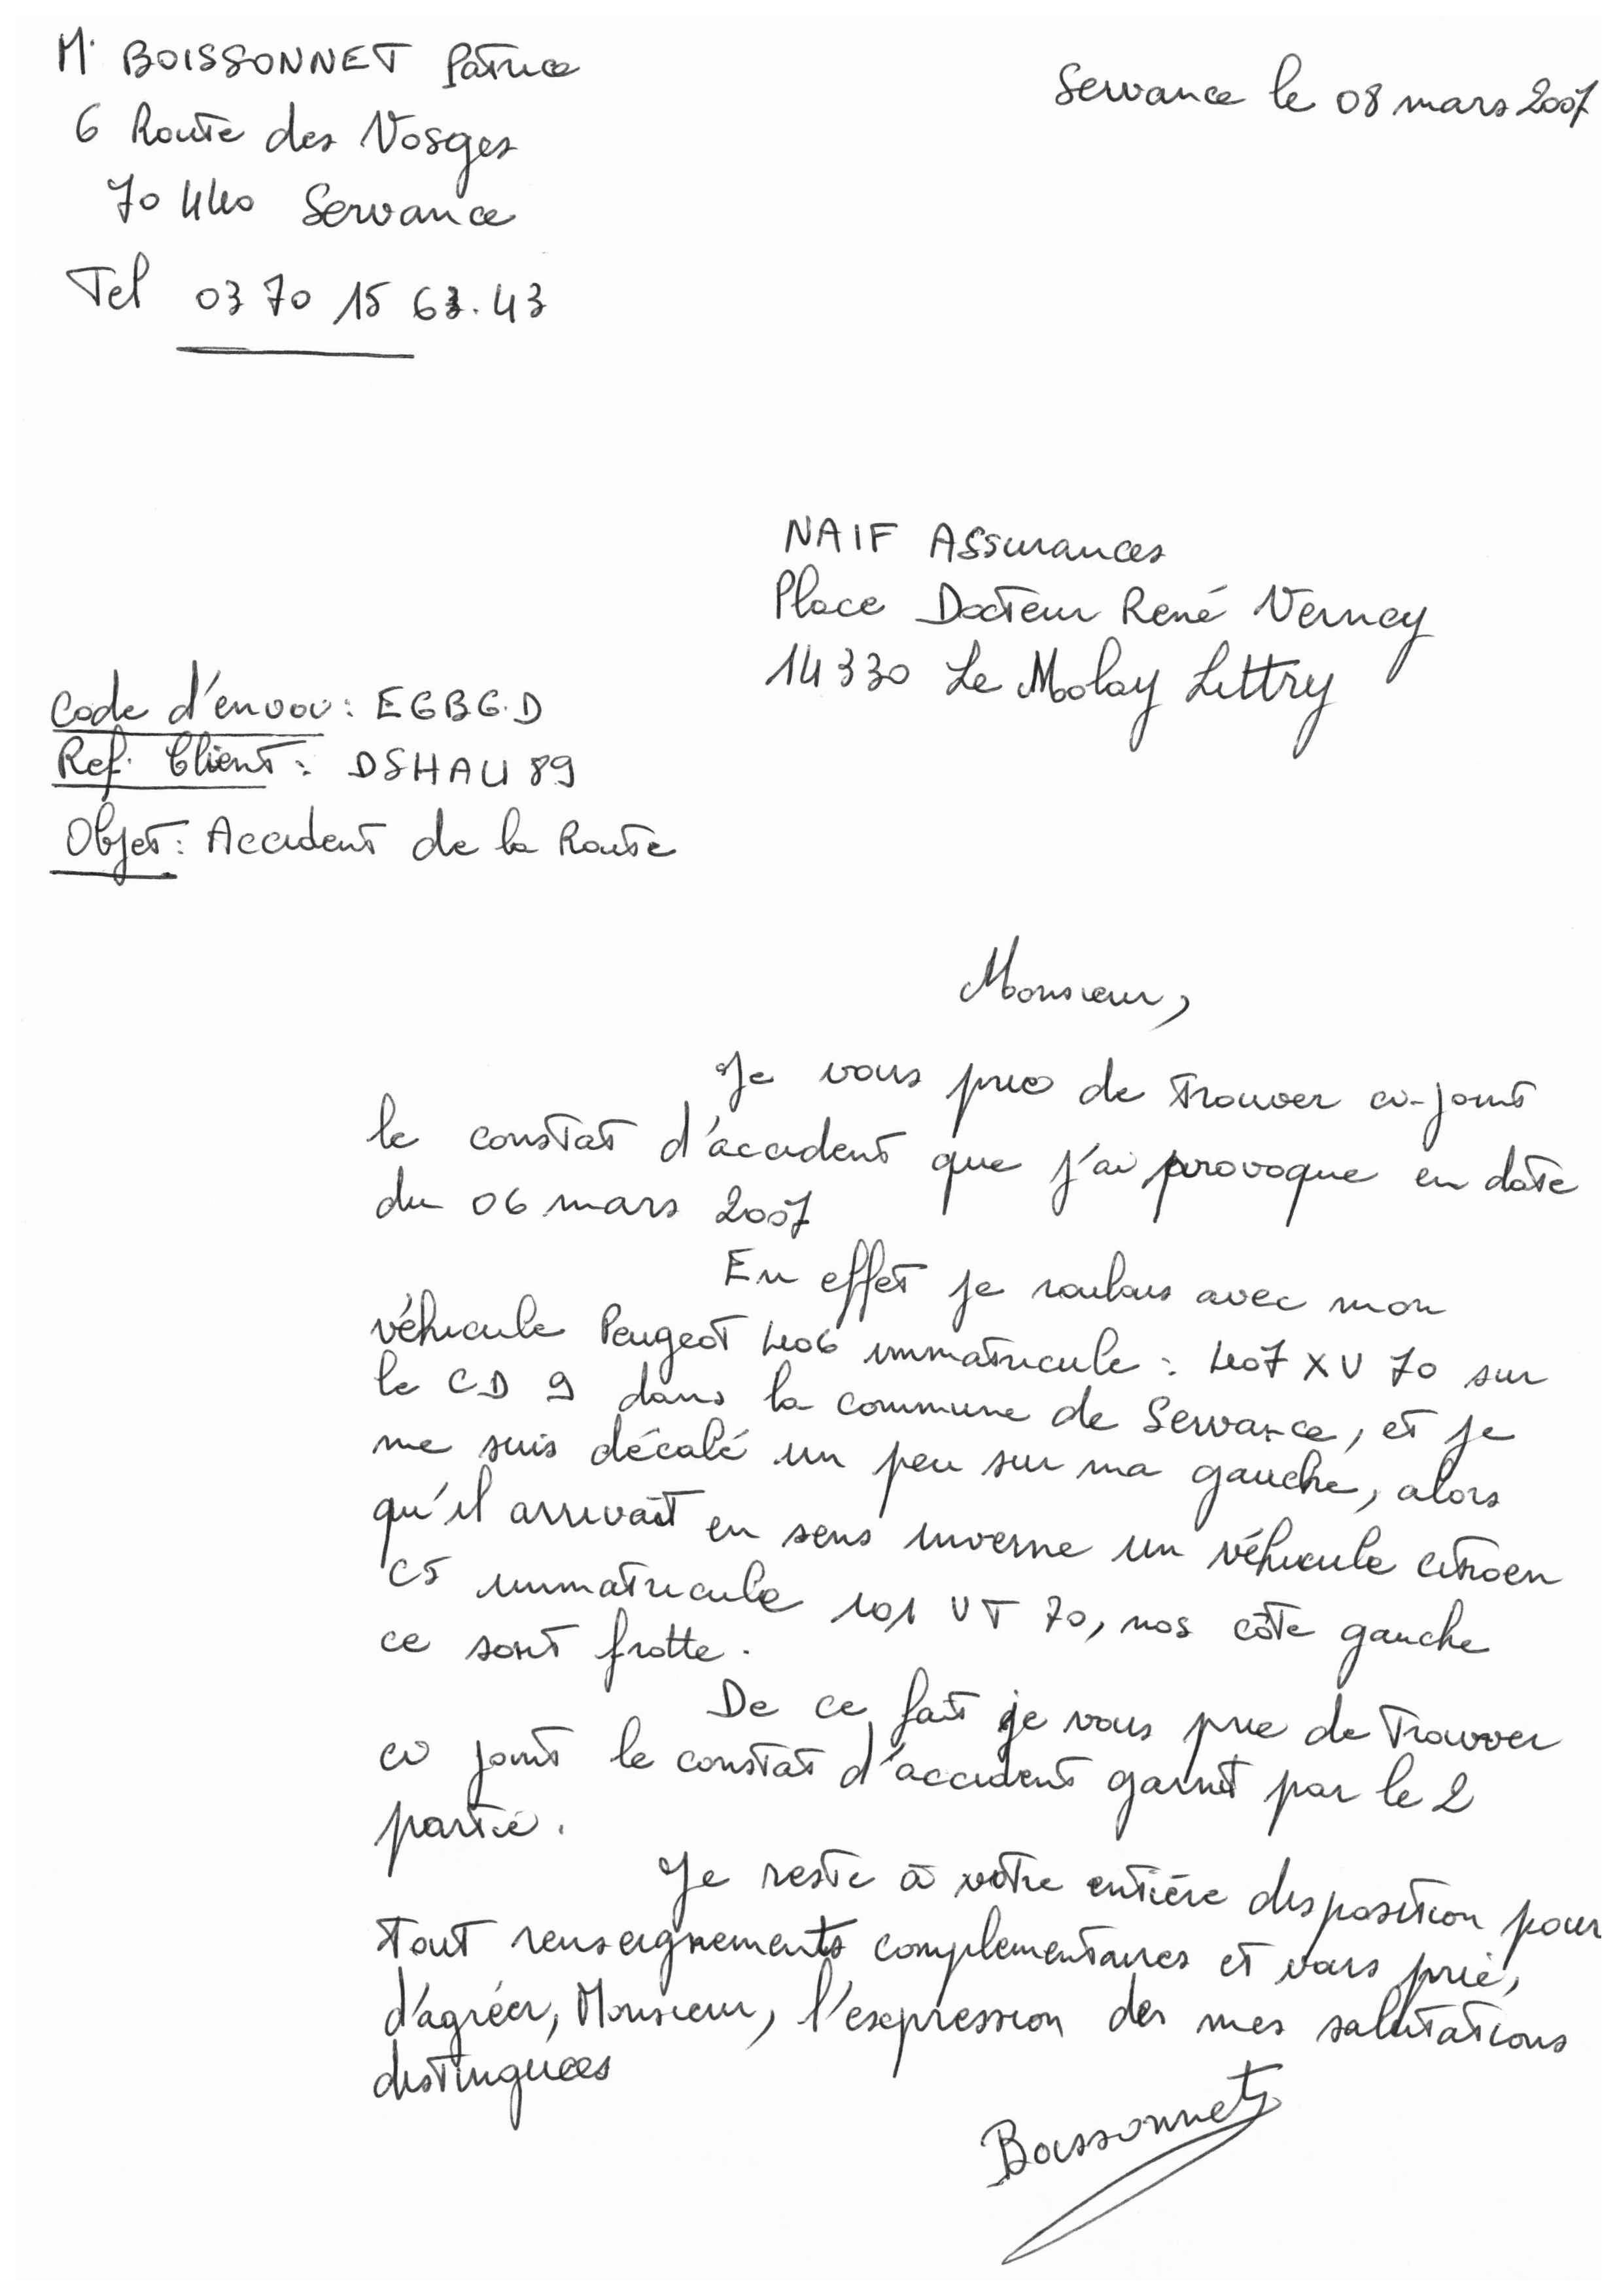 Mr BOISSONNET Patrice
Servance le 08 mars 2007
6 Route des Vosges
70 440 Servance
Tel 03 70 15 63.43
NAIF Assurances
Place Docteur René Vernay
14 330 Le Molay Littry
Code d'envoi : EGBGD
Ref. Client : DSHAU 89
Objet : Accident de la Route
Monsieur,
Je vous prie de trouver ci-joint
le constat d'accident que j'ai provoque en date
du 06 mars 2007
En effet je roulais avec mon
véhicule Peugeot 406 immatricule : 407 XV 70 sur
le CD 9 dans la commune de Servance, et je
me suis décalé un peu sur ma gauche, alors
qu'il arrivait en sens inverse un véhicule citroen
C5 immatricule 101 VT 70, nos côte gauche
ce sont frotte.
De ce fait je vous prie de trouver
ci joint le constat d'accident garnit par le 2
partie.
Je reste à votre entière disposition pour
tout renseignements complementaires et vous prie,
d'agréer, Monsieur, l'expression des mes salutations
distinguées
Boissonnet